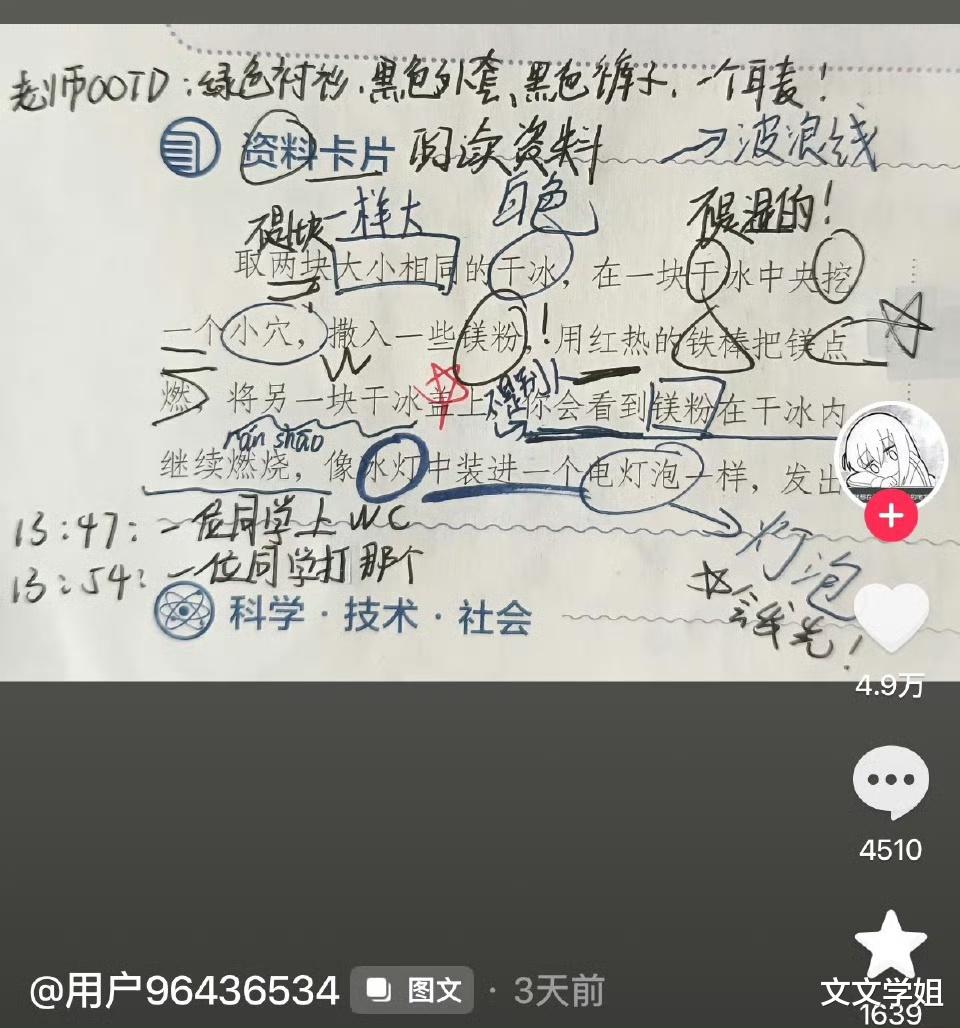 老师OOTD：绿色衬衫、黑色外套、黑色裤子、一个耳麦！
资料卡片 阅读资料 →波浪线
不是1块 一样大 白色 不是湿的！
取两块大小相同的干冰，在一块干冰中央挖
一个小穴，撒入一些镁粉，！用红热的铁棒把镁点
燃，将另一块干冰盖上。你会看到镁粉在干冰内
rán shāo
继续燃烧，像冰灯中装进一个电灯泡一样，发出
13：47：一位同学上WC
灯泡
13：54：一位同学打那个
科学·技术·社会
4.9万
4510
@用户96436534 图文 · 3天前
文文学姐
1639